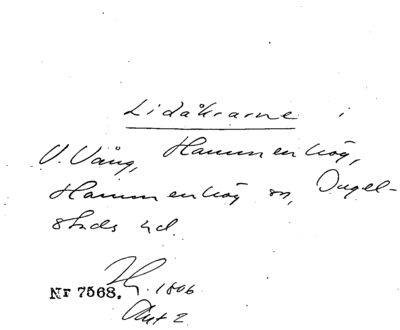 Lidåkrarne i
V. Vång, Hammenhög,
Hammenhög sn, Ingel-
stads hd.
Nr 7568. 1806
Akt 2